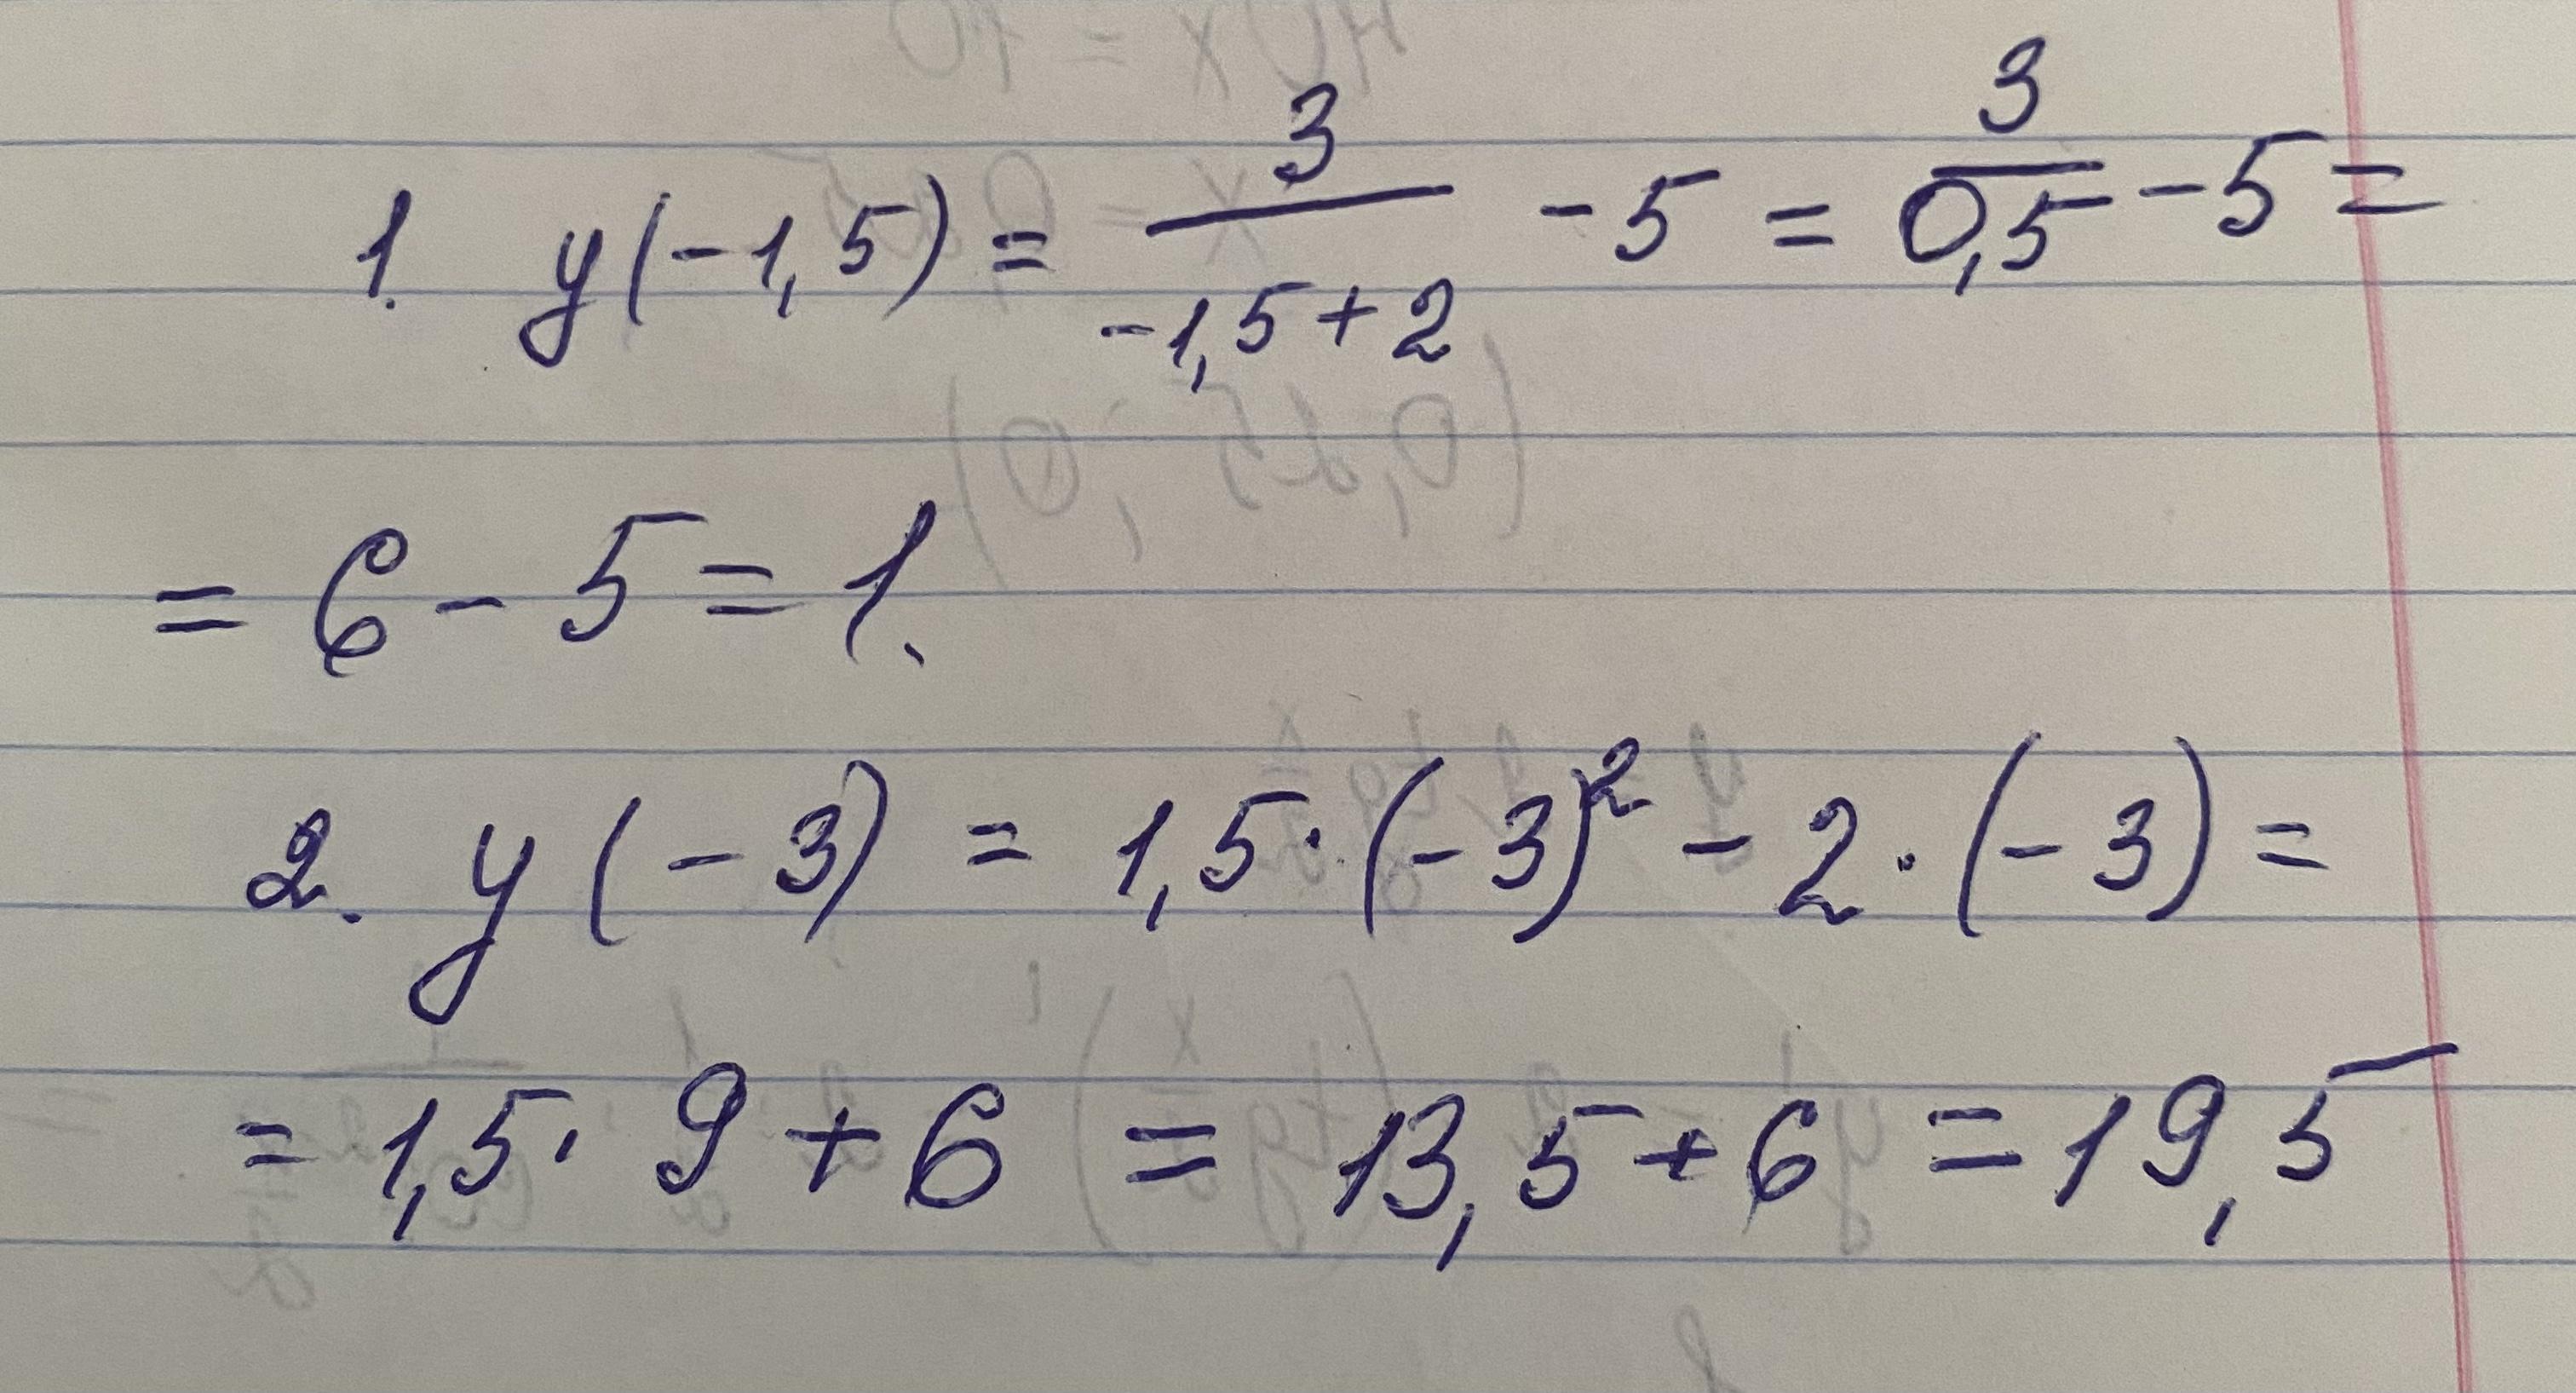 1. y(-1,5) = 3/(-1,5+2) - 5 = 3/0,5 - 5 =
= 6 - 5 = 1.
2. y(-3) = 1,5·(-3)² - 2·(-3) =
= 1,5·9 + 6 = 13,5 + 6 = 19,5